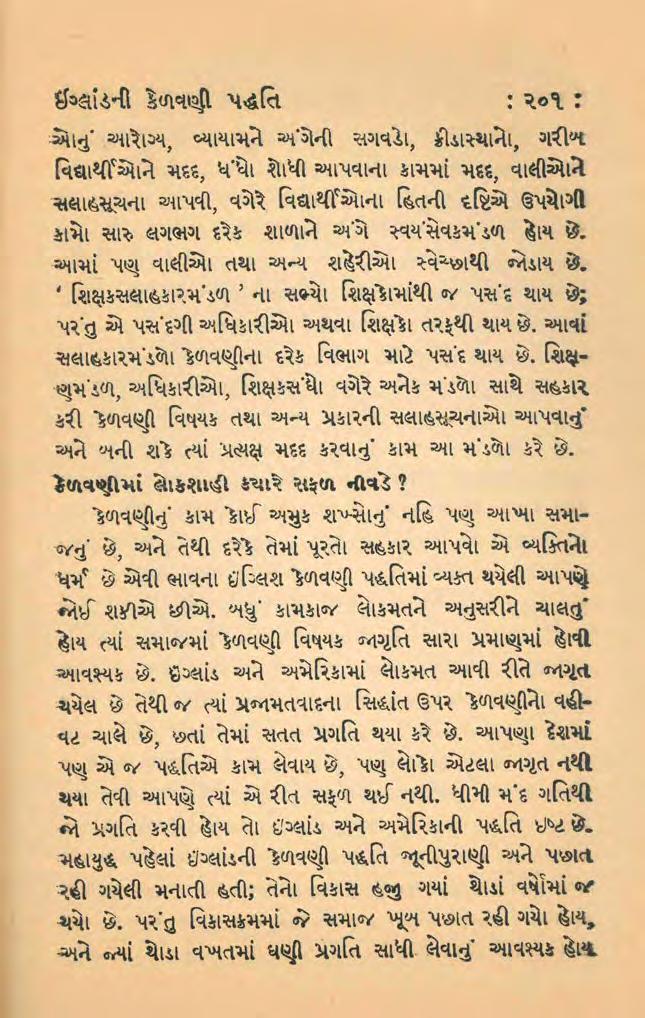 ઈંગ્લાંડની કેળવણી પદ્ધતિ : ૨૦૧ :
ઓનું આરોગ્ય, વ્યાયામને અંગેની સગવડો, ક્રીડાસ્થાનો, ગરીબ
વિદ્યાર્થીઓને મદદ, ધંધો શોધી આપવાના કામમાં મદદ, વાલીઓને
સલાહસૂચના આપવી, વગેરે વિદ્યાર્થીઓના હિતની દૃષ્ટિએ ઉપયોગી
કામો સારુ લગભગ દરેક શાળાને અંગે સ્વયંસેવકમંડળ હોય છે.
આમાં પણ વાલીઓ તથા અન્ય શહેરીઓ સ્વેચ્છાથી જોડાય છે.
‘ શિક્ષકસલાહકારમંડળ ’ ના સભ્યો શિક્ષકોમાંથી જ પસંદ થાય છે;
પરંતુ એ પસંદગી અધિકારીઓ અથવા શિક્ષકો તરફથી થાય છે. આવાં
સલાહકારમંડળો કેળવણીના દરેક વિભાગ માટે પસંદ થાય છે. શિક્ષ-
ણમંડળ, અધિકારીઓ, શિક્ષકસંઘો વગેરે અનેક મંડળો સાથે સહકાર
કરી કેળવણી વિષયક તથા અન્ય પ્રકારની સલાહસૂચનાઓ આપવાનું
અને બની શકે ત્યાં પ્રત્યક્ષ મદદ કરવાનું કામ આ મંડળો કરે છે.
કેળવણીમાં લોકશાહી ક્યારે સફળ નીવડે ?
કેળવણીનું કામ કોઈ અમુક શખ્સોનું નહિ પણ આખા સમા-
જનું છે, અને તેથી દરેકે તેમાં પૂરતો સહકાર આપવો એ વ્યક્તિનો
ધર્મ છે એવી ભાવના ઇંગ્લિશ કેળવણી પદ્ધતિમાં વ્યક્ત થયેલી આપણે
જોઈ શકીએ છીએ. બધું કામકાજ લોકમતને અનુસરીને ચાલતું
હોય ત્યાં સમાજમાં કેળવણી વિષયક જાગૃતિ સારા પ્રમાણમાં હોવી
આવશ્યક છે. ઇંગ્લાંડ અને અમેરિકામાં લોકમત આવી રીતે જાગૃત
થયેલ છે તેથી જ ત્યાં પ્રજામતવાદના સિદ્ધાંત ઉપર કેળવણીનો વહી-
વટ ચાલે છે, છતાં તેમાં સતત પ્રગતિ થયા કરે છે. આપણા દેશમાં
પણ એ જ પદ્ધતિએ કામ લેવાય છે, પણ લોકો એટલા જાગૃત નથી
થયા તેવી આપણે ત્યાં એ રીત સફળ થઈ નથી. ધીમી મંદ ગતિથી
જો પ્રગતિ કરવી હોય તો ઇંગ્લાંડ અને અમેરિકાની પદ્ધતિ ઇષ્ટ છે.
મહાયુદ્ધ પહેલાં ઇંગ્લાંડની કેળવણી પદ્ધતિ જૂનીપુરાણી અને પછાત
રહી ગયેલી મનાતી હતી; તેનો વિકાસ હજી ગયાં થોડાં વર્ષોમાં જ
થયો છે. પરંતુ વિકાસક્રમમાં જે સમાજ ખૂબ પછાત રહી ગયો હોય,
અને જ્યાં થોડા વખતમાં ઘણી પ્રગતિ સાધી લેવાનું આવશ્યક હોય